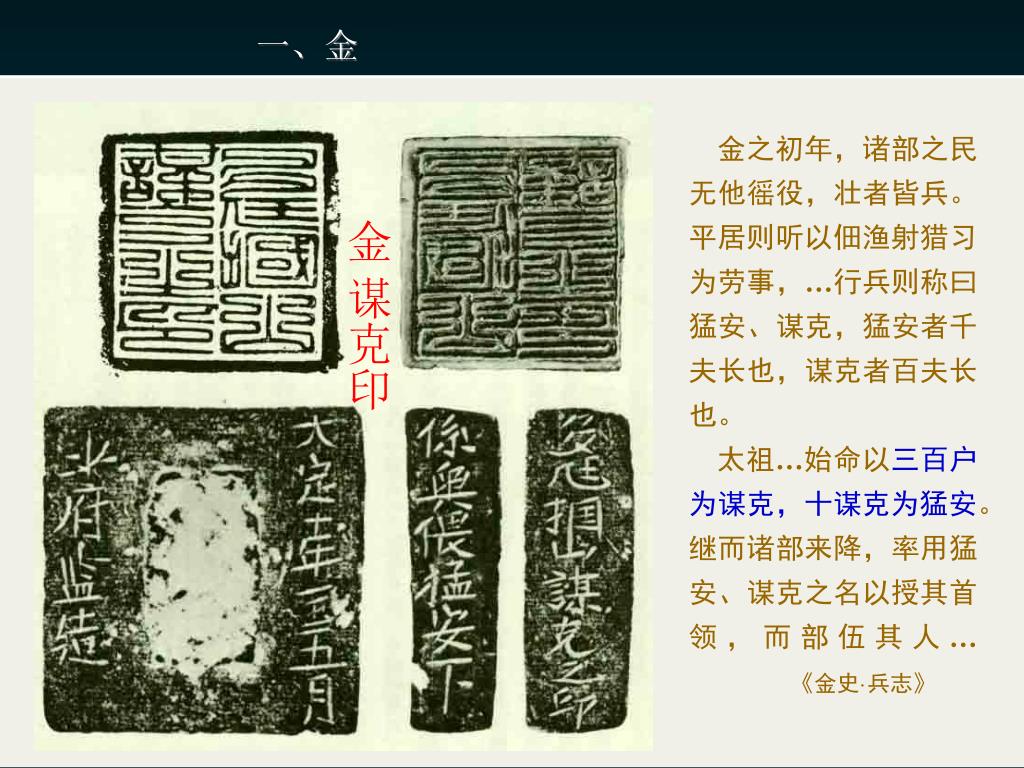 一、金
金谋克印
大定十年五月
少府监造
係與偎猛安下
谋克之印
金之初年，诸部之民
无他徭役，壮者皆兵。
平居则听以佃渔射猎习
为劳事，…行兵则称曰
猛安、谋克，猛安者千
夫长也，谋克者百夫长
也。
太祖…始命以三百户
为谋克，十谋克为猛安。
继而诸部来降，率用猛
安、谋克之名以授其首
领，而部伍其人…
《金史·兵志》